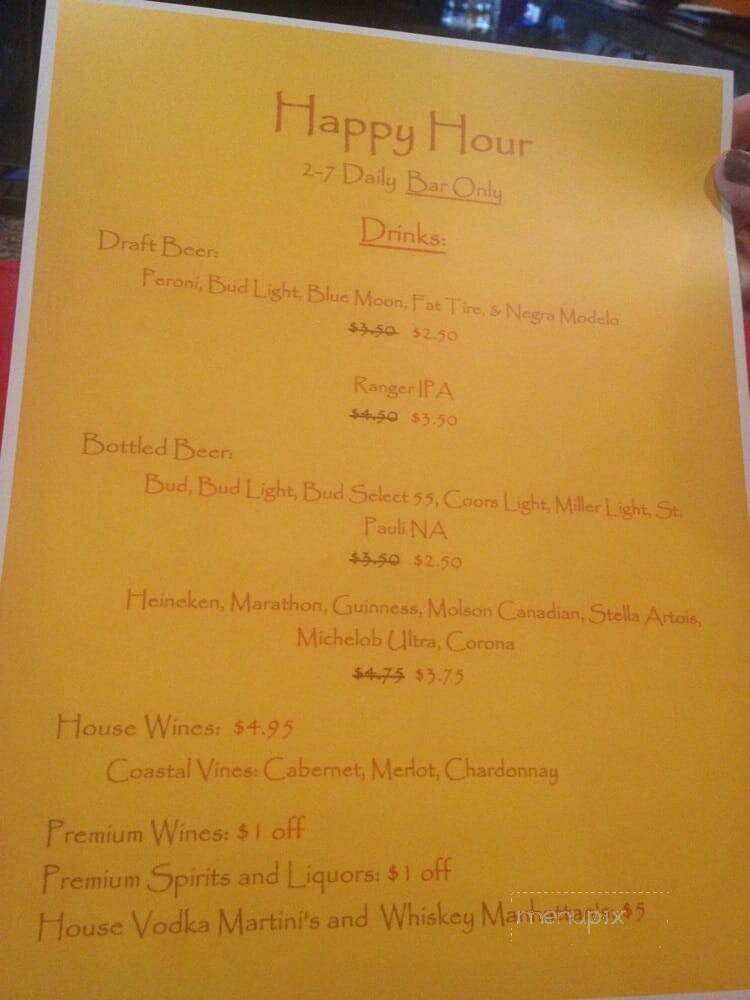 Happy Hour
2-7 Daily Bar Only
Drinks:
Draft Beer:
Peroni, Bud Light, Blue Moon, Fat Tire, & Negra Modelo
$3.50 $2.50
Ranger IPA
$4.50 $3.50
Bottled Beer:
Bud, Bud Light, Bud Select 55, Coors Light, Miller Light, St.
Pauli NA
$3.50 $2.50
Heineken, Marathon, Guinness, Molson Canadian, Stella Artois,
Michelob Ultra, Corona
$4.75 $3.75
House Wines: $4.95
Coastal Vines: Cabernet, Merlot, Chardonnay
Premium Wines: $1 off
Premium Spirits and Liquors: $1 off
House Vodka Martini's and Whiskey Manhattan's: $5
menupix